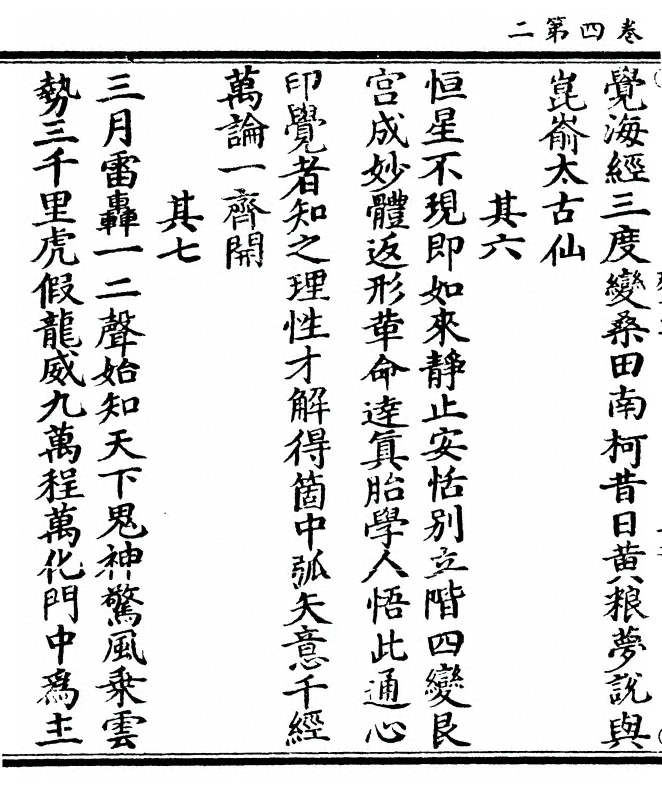 卷四第二
覺海經三度變桑田南柯昔日黄粮夢說與
崑崙太古仙
其六
恒星不現即如來靜止安恬別立階四變艮
宫成妙體返形革命達眞胎學人悟此通心
印覺者知之理性才解得箇中弧矢意千經
萬論一齊開
其七
三月雷轟一二聲始知天下鬼神驚風乗雲
勢三千里虎假龍威九萬程萬化門中爲主